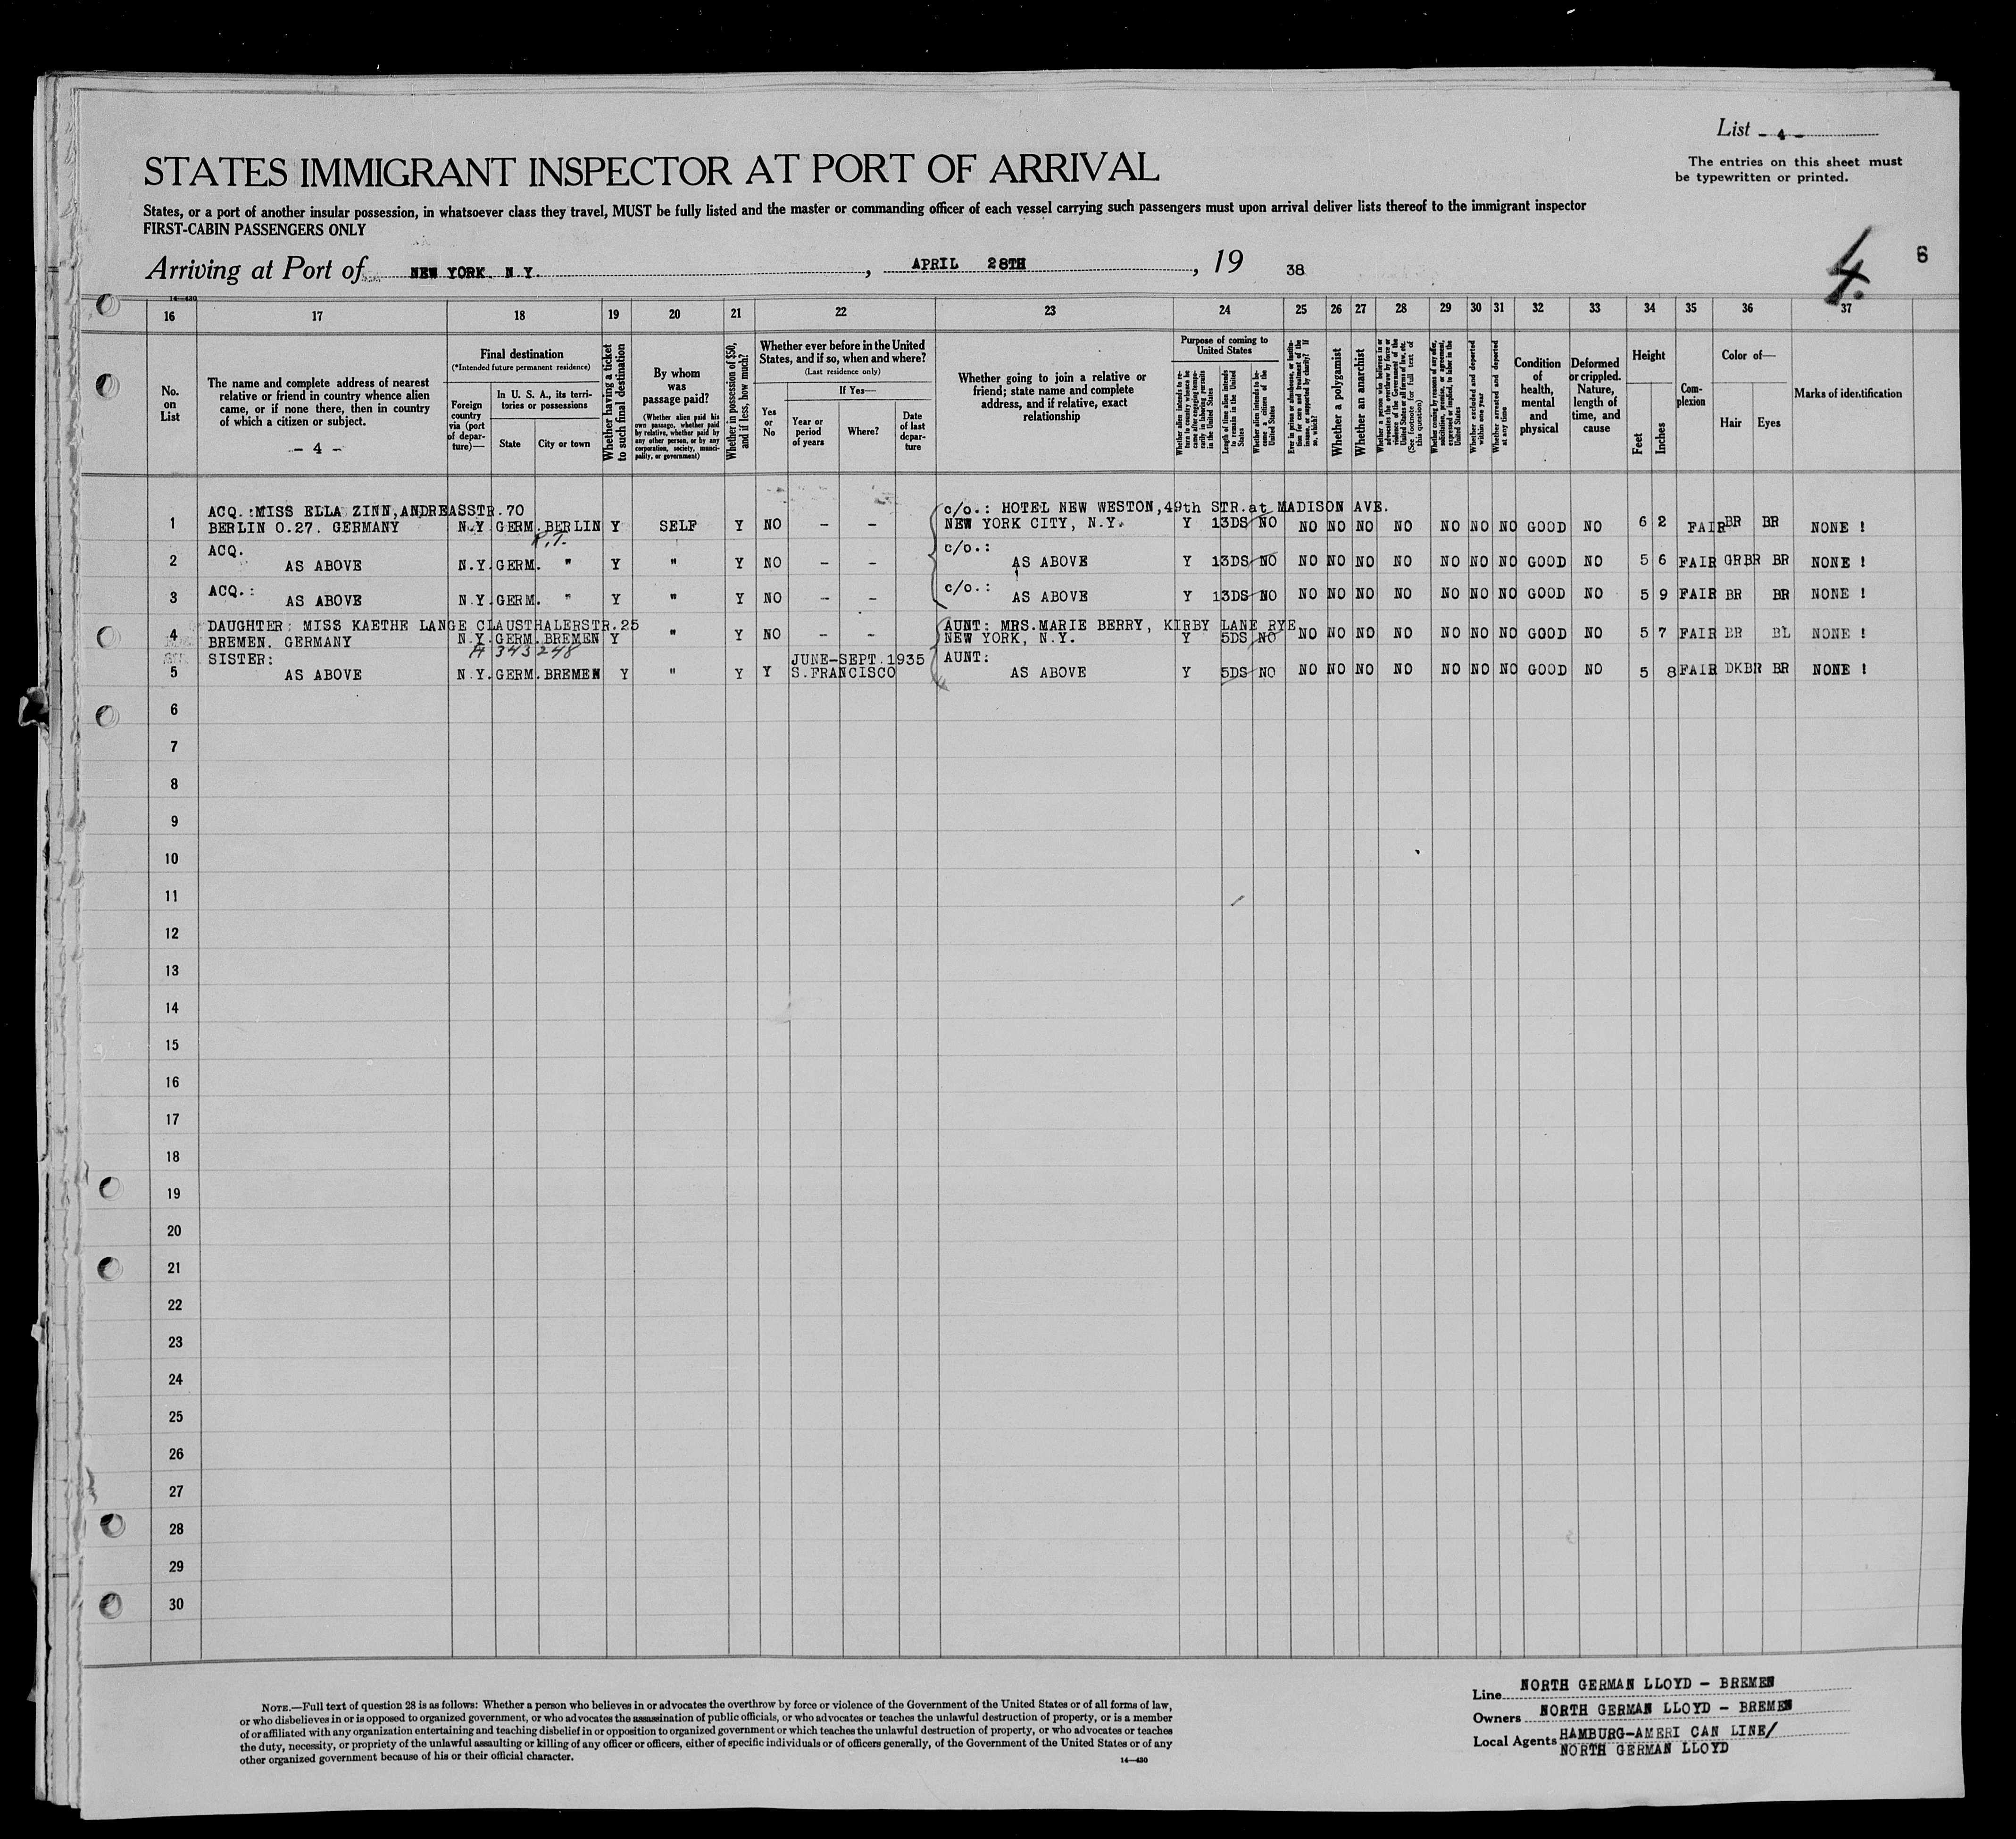 List - 4 -
The entries on this sheet must
be typewritten or printed.
STATES IMMIGRANT INSPECTOR AT PORT OF ARRIVAL
States, or a port of another insular possession, in whatsoever class they travel, MUST be fully listed and the master or commanding officer of each vessel carrying such passengers must upon arrival deliver lists thereof to the immigrant inspector
FIRST-CABIN PASSENGERS ONLY
Arriving at Port of NEW YORK N.Y. , APRIL 28TH , 19 38
4. 6
14—430
16 17 18 19 20 21 22 23 24 25 26 27 28 29 30 31 32 33 34 35 36 37
No.
on
List
The name and complete address of nearest
relative or friend in country whence alien
came, or if none there, then in country
of which a citizen or subject.
- 4 -
Final destination
(*Intended future permanent residence)
Foreign
country
via (port
of depar-
ture)—
In U. S. A., its terri-
tories or possessions
State
City or town
Whether having a ticket
to such final destination
By whom
was
passage paid?
(Whether alien paid his
own passage, whether paid
by relative, whether paid by
any other person, or by any
corporation, society, munici-
pality, or government)
Whether in possession of $50,
and if less, how much?
Whether ever before in the United
States, and if so, when and where?
(Last residence only)
Yes
or
No
If Yes—
Year or
period
of years
Where?
Date
of last
depar-
ture
Whether going to join a relative or
friend; state name and complete
address, and if relative, exact
relationship
Purpose of coming to
United States
Whether alien intends to re-
turn to country whence he
came after engaging tempo-
rarily in laboring pursuits
in the United States
Length of time alien intends
to remain in the United
States
Whether alien intends to be-
come a citizen of the
United States
Ever in prison or almshouse, or institu-
tion for care and treatment of the
insane, or supported by charity? If
so, which?
Whether a polygamist
Whether an anarchist
Whether a person who believes in or
advocates the overthrow by force or
violence of the Government of the
United States or all forms of law, etc.
(See footnote for full text of
this question)
Whether coming by reasons of any offer,
solicitation, promise, or agreement,
expressed or implied, to labor in the
United States
Whether excluded and deported
within one year
Whether arrested and deported
at any time
Condition
of
health,
mental
and
physical
Deformed
or crippled.
Nature,
length of
time, and
cause
Height
Feet
Inches
Com-
plexion
Color of—
Hair
Eyes
Marks of identification
ACQ.:MISS ELLA ZINN,ANDREASSTR.70 c/o.: HOTEL NEW WESTON,49th STR.at MADISON AVE.
1 BERLIN O.27. GERMANY N.Y. GERM. BERLIN Y SELF Y NO - - NEW YORK CITY, N.Y. Y 13DS NO NO NO NO NO NO NO NO GOOD NO 6 2 FAIR BR BR NONE !
R.T.
ACQ. c/o.:
2 AS ABOVE N.Y. GERM. " Y " Y NO - - AS ABOVE Y 13DS NO NO NO NO NO NO NO NO GOOD NO 5 6 FAIR GRBR BR NONE !
ACQ.: c/o.:
3 AS ABOVE N.Y. GERM. " Y " Y NO - - AS ABOVE Y 13DS NO NO NO NO NO NO NO NO GOOD NO 5 9 FAIR BR BR NONE !
DAUGHTER: MISS KAETHE LANGE CLAUSTHALERSTR.25 AUNT: MRS.MARIE BERRY, KIRBY LANE RYE
4 BREMEN. GERMANY N.Y. GERM. BREMEN Y " Y NO - - NEW YORK, N.Y. Y 5DS NO NO NO NO NO NO NO NO GOOD NO 5 7 FAIR BR BL NONE !
A 343248
SISTER: JUNE-SEPT.1935 AUNT:
5 AS ABOVE N.Y. GERM. BREMEN Y " Y Y S.FRANCISCO AS ABOVE Y 5DS NO NO NO NO NO NO NO NO GOOD NO 5 8 FAIR DKBR BR NONE !
6
7
8
9
10
11
12
13
14
15
16
17
18
19
20
21
22
23
24
25
26
27
28
29
30
NOTE.—Full text of question 28 is as follows: Whether a person who believes in or advocates the overthrow by force or violence of the Government of the United States or of all forms of law,
or who disbelieves in or is opposed to organized government, or who advocates the assassination of public officials, or who advocates or teaches the unlawful destruction of property, or is a member
of or affiliated with any organization entertaining and teaching disbelief in or opposition to organized government or which teaches the unlawful destruction of property, or who advocates or teaches
the duty, necessity, or propriety of the unlawful assaulting or killing of any officer or officers, either of specific individuals or of officers generally, of the Government of the United States or of any
other organized government because of his or their official character.
14—430
Line NORTH GERMAN LLOYD - BREMEN
Owners NORTH GERMAN LLOYD - BREMEN
Local Agents HAMBURG-AMERI CAN LINE/
NORTH GERMAN LLOYD